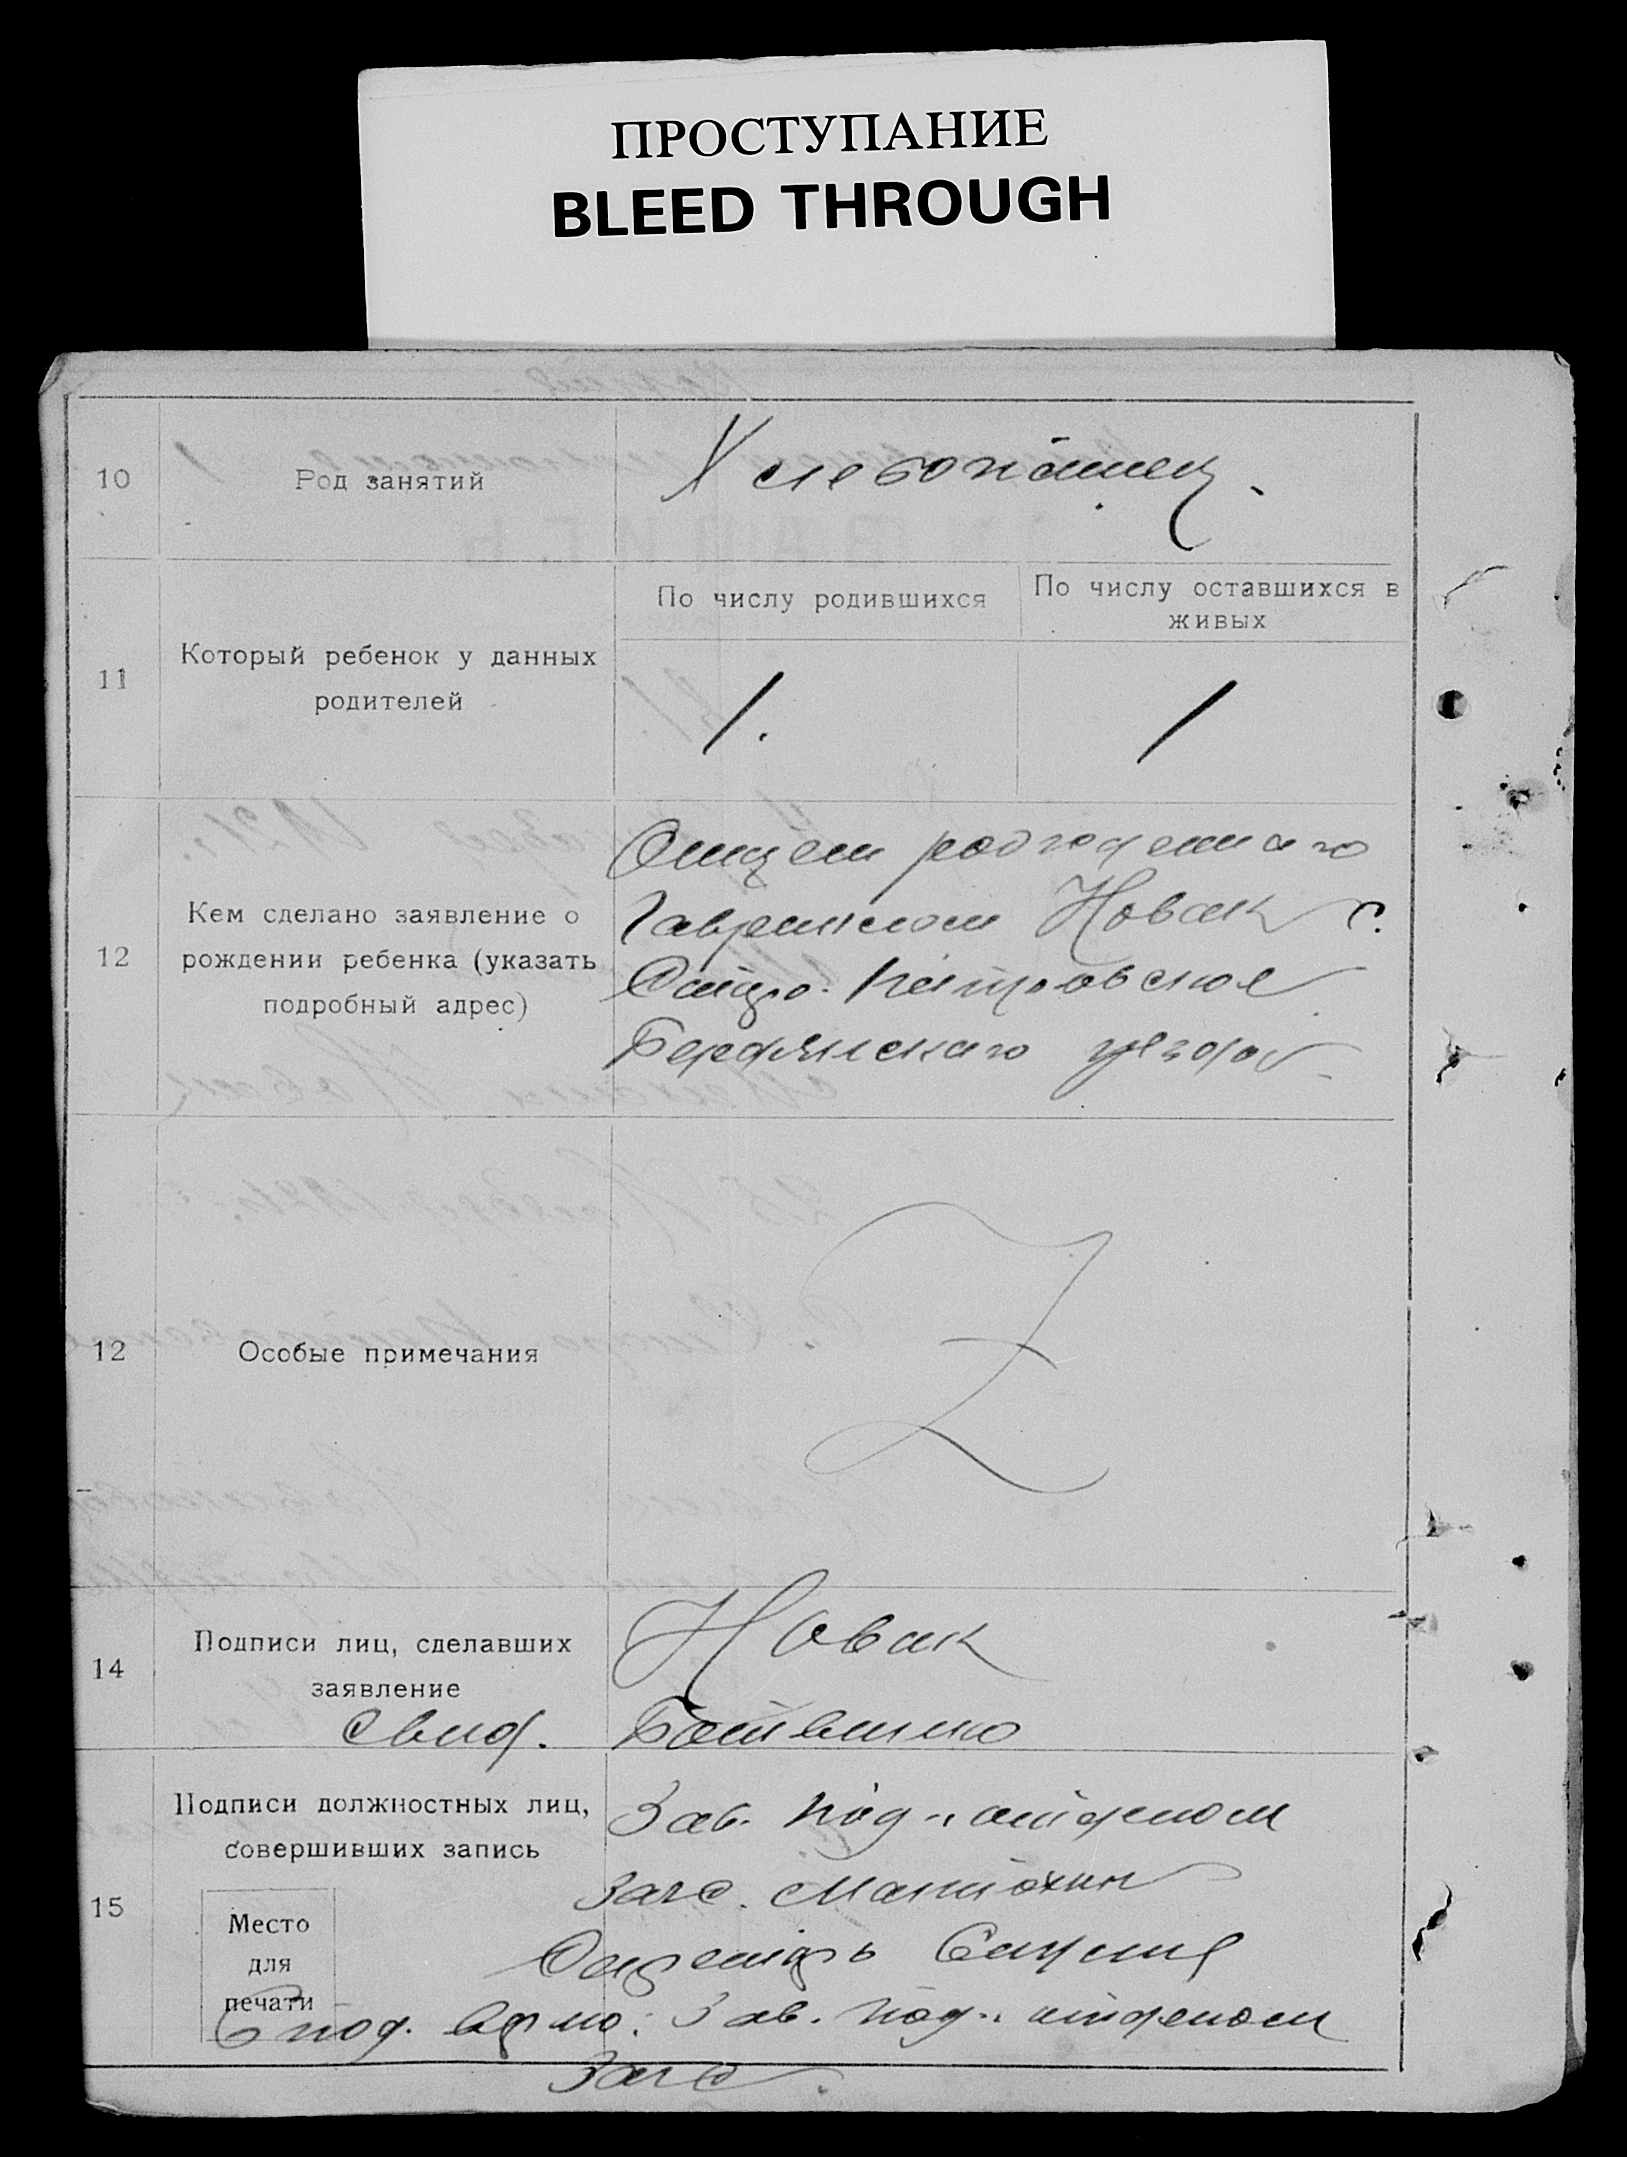 ПРОСТУПАНИЕ
BLEED THROUGH
10
Род занятий
Хлебопашец.
11
Который ребенок у данных
родителей
По числу родившихся
По числу оставшихся в
живых
1.
1
12
Кем сделано заявление о
рождении ребенка (указать
подробный адрес)
Отцем
Новак с.
Петровское
Бердянскаго уезда
12
Особые примечания
Z
14
Подписи лиц, сделавших
заявление
Свид.
Новак
15
Подписи должностных лиц,
совершивших запись
Место
для
печати
Зав. под. отделом
Загс.
Секретарь
С под. верно: Зав. под. отделом
Загс.